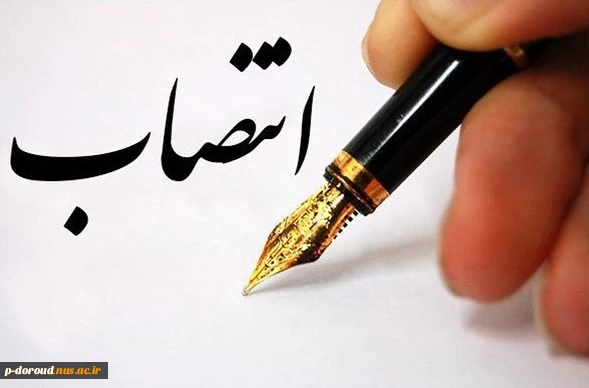 انتصاب
p-doroud.nus.ac.ir